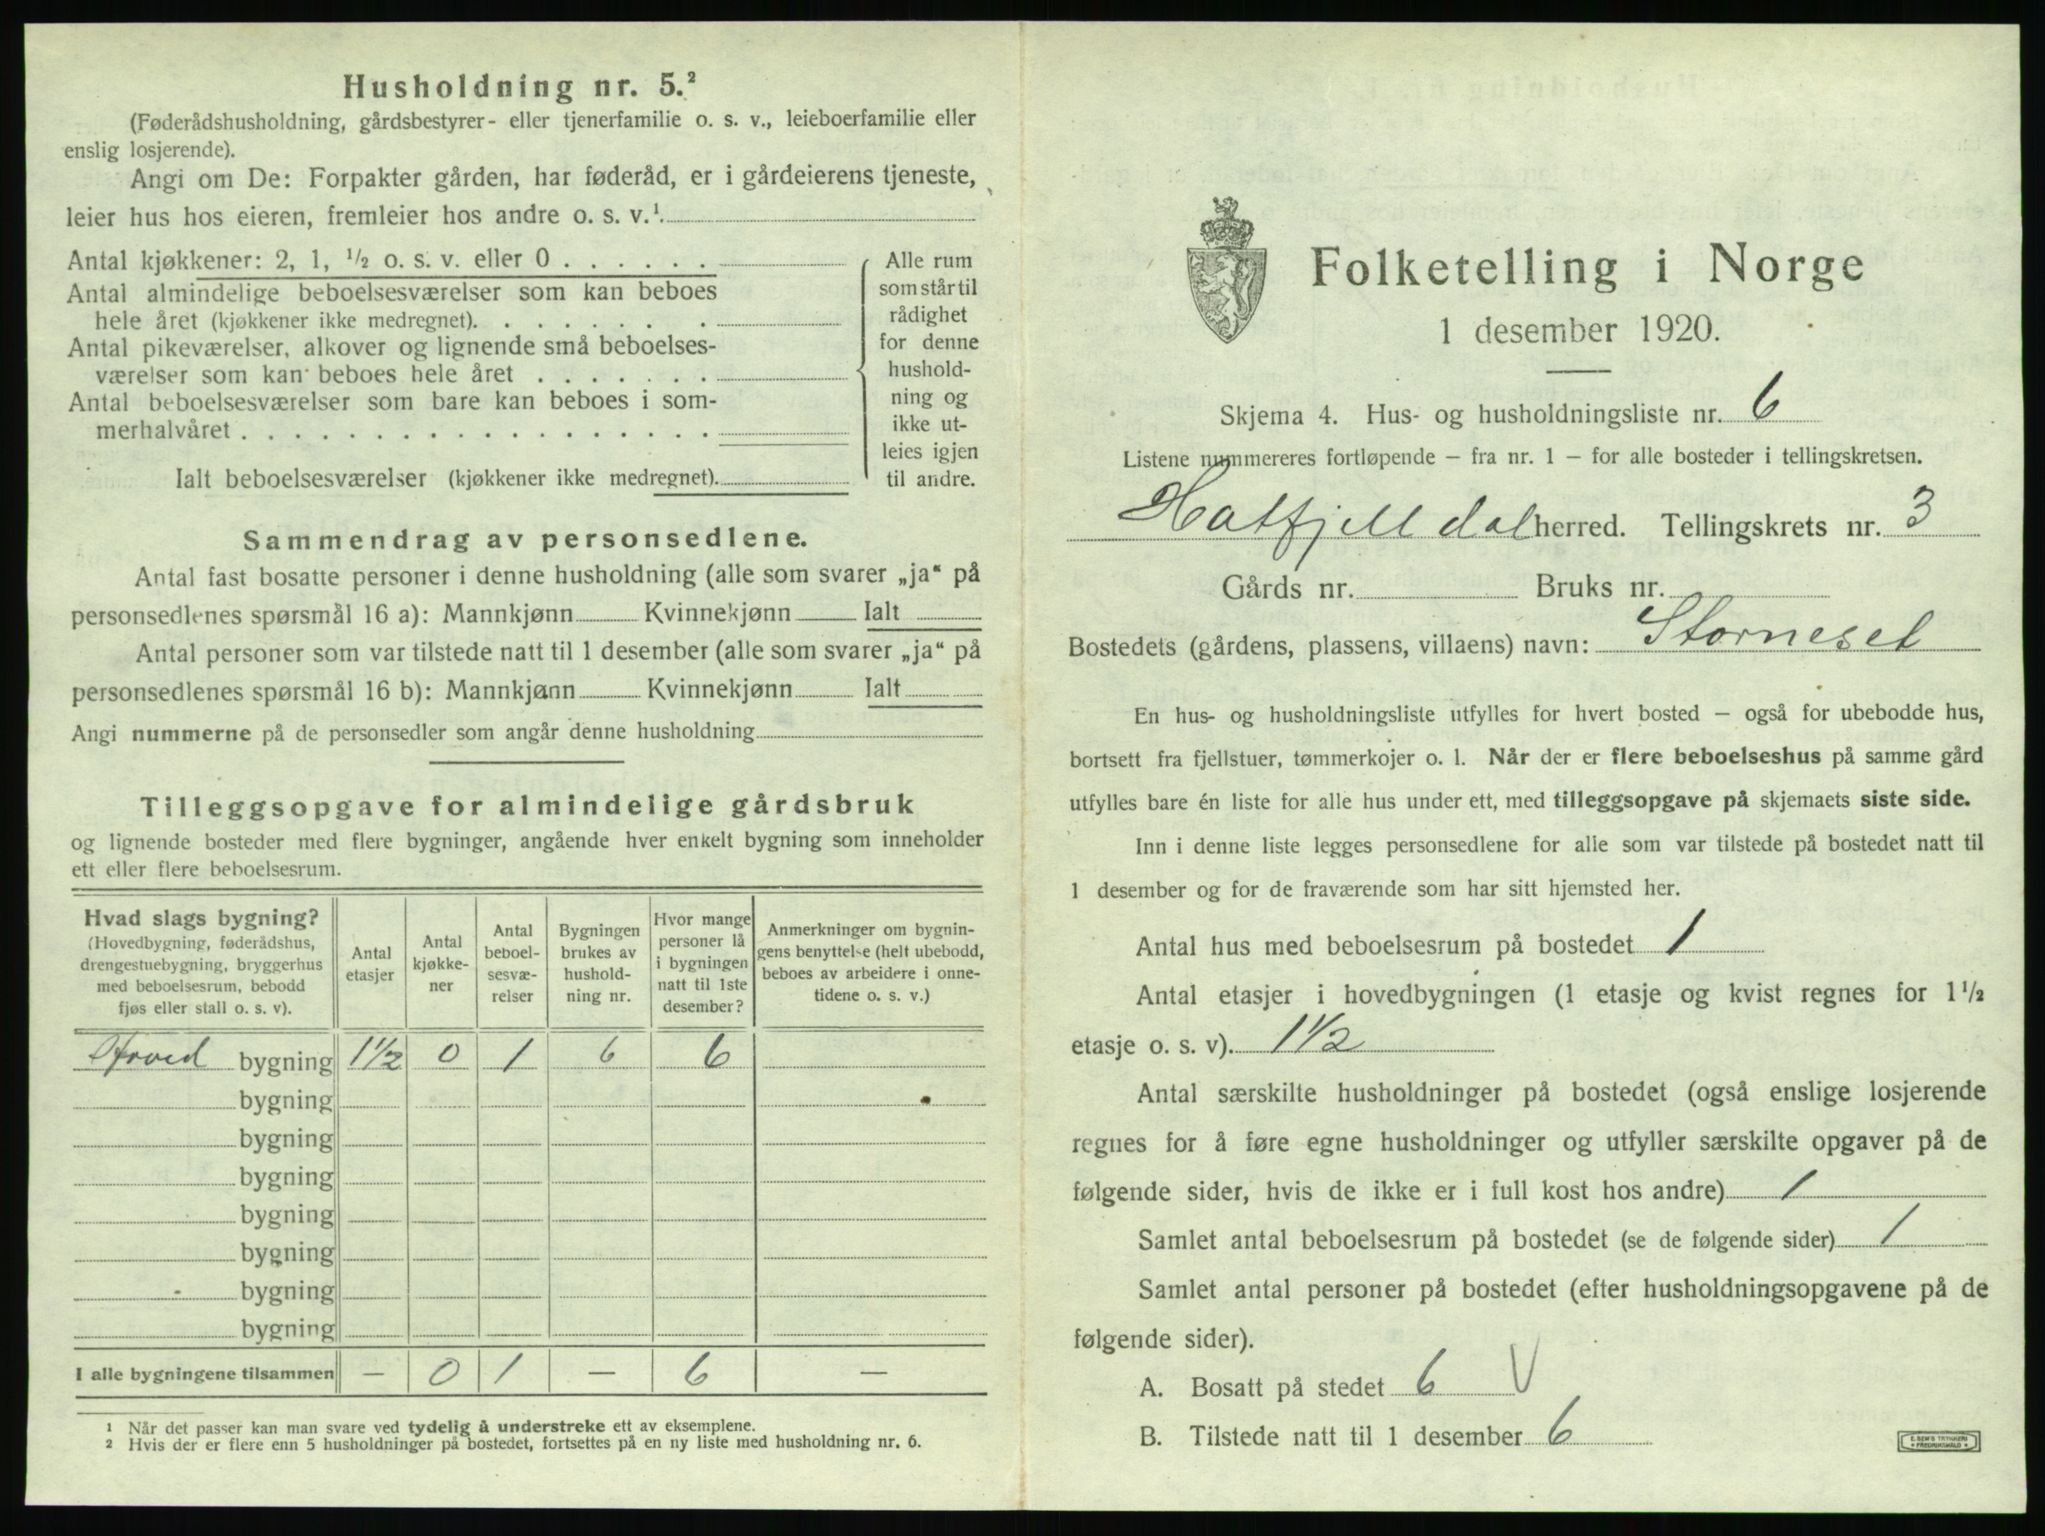 Husholdning nr. 5.²
(Føderådshusholdning, gårdsbestyrer- eller tjenerfamilie o. s. v., leieboerfamilie eller
enslig losjerende).
Angi om De: Forpakter gården, har føderåd, er i gårdeierens tjeneste,
leier hus hos eieren, fremleier hos andre o. s. v.¹.
Antal kjøkkener: 2, 1, ½ o. s. v. eller 0 . . . . . .
Antal almindelige beboelsesværelser som kan beboes
hele året (kjøkkener ikke medregnet). . . . . . . .
Antal pikeværelser, alkover og lignende små beboelses-
værelser som kan beboes hele året . . . . . . .
Antal beboelsesværelser som bare kan beboes i som-
merhalvåret . . . . . . . . . . . . . . . . . .
Ialt beboelsesværelser (kjøkkener ikke medregnet).
Alle rum
som står til
rådighet
for denne
hushold-
ning og
ikke ut-
leies igjen
til andre.
Sammendrag av personsedlene.
Antal fast bosatte personer i denne husholdning (alle som svarer „ja“ på
personsedlenes spørsmål 16 a): Mannkjønn Kvinnekjønn Ialt
Antal personer som var tilstede natt til 1 desember (alle som svarer „ja“ på
personsedlenes spørsmål 16 b): Mannkjønn Kvinnekjønn Ialt
Angi nummerne på de personsedler som angår denne husholdning
Tilleggsopgave for almindelige gårdsbruk
og lignende bosteder med flere bygninger, angående hver enkelt bygning som inneholder
ett eller flere beboelsesrum.
Hvad slags bygning?
(Hovedbygning, føderådshus,
drengestuebygning, bryggerhus
med beboelsesrum, bebodd
fjøs eller stall o. s. v).
Antal
etasjer
Antal
kjøkke-
ner
Antal
beboel-
sesvæ-
relser
Bygningen
brukes av
hushold-
ning nr.
Hvor mange
personer lå
i bygningen
natt til 1ste
desember?
Anmerkninger om bygnin-
gens benyttelse (helt ubebodd,
beboes av arbeidere i onne-
tidene o. s. v.)
Hoved bygning 1½ 0 1 6 6
bygning
bygning
bygning
bygning
bygning
bygning
bygning
I alle bygningene tilsammen — 0 1 — 6 —
¹ Når det passer kan man svare ved tydelig å understreke ett av eksemplene.
² Hvis der er flere enn 5 husholdninger på bostedet, fortsettes på en ny liste med husholdning nr. 6.
Folketelling i Norge
1 desember 1920.
Skjema 4. Hus- og husholdningsliste nr. 6
Listene nummereres fortløpende – fra nr. 1 – for alle bosteder i tellingskretsen.
Hatfjelldal herred. Tellingskrets nr. 3
Gårds nr. Bruks nr.
Bostedets (gårdens, plassens, villaens) navn: Storneset
En hus- og husholdningsliste utfylles for hvert bosted – også for ubebodde hus,
bortsett fra fjellstuer, tømmerkojer o. l. Når der er flere beboelseshus på samme gård
utfylles bare én liste for alle hus under ett, med tilleggsopgave på skjemaets siste side.
Inn i denne liste legges personsedlene for alle som var tilstede på bostedet natt til
1 desember og for de fraværende som har sitt hjemsted her.
Antal hus med beboelsesrum på bostedet 1
Antal etasjer i hovedbygningen (1 etasje og kvist regnes for 1½
etasje o. s. v). 1½
Antal særskilte husholdninger på bostedet (også enslige losjerende
regnes for å føre egne husholdninger og utfyller særskilte opgaver på de
følgende sider, hvis de ikke er i full kost hos andre) 1
Samlet antal beboelsesrum på bostedet (se de følgende sider) 1
Samlet antal personer på bostedet (efter husholdningsopgavene på de
følgende sider).
A. Bosatt på stedet 6 V
B. Tilstede natt til 1 desember 6
E. SEM'S TRYKKERI
FREDRIKSHALD